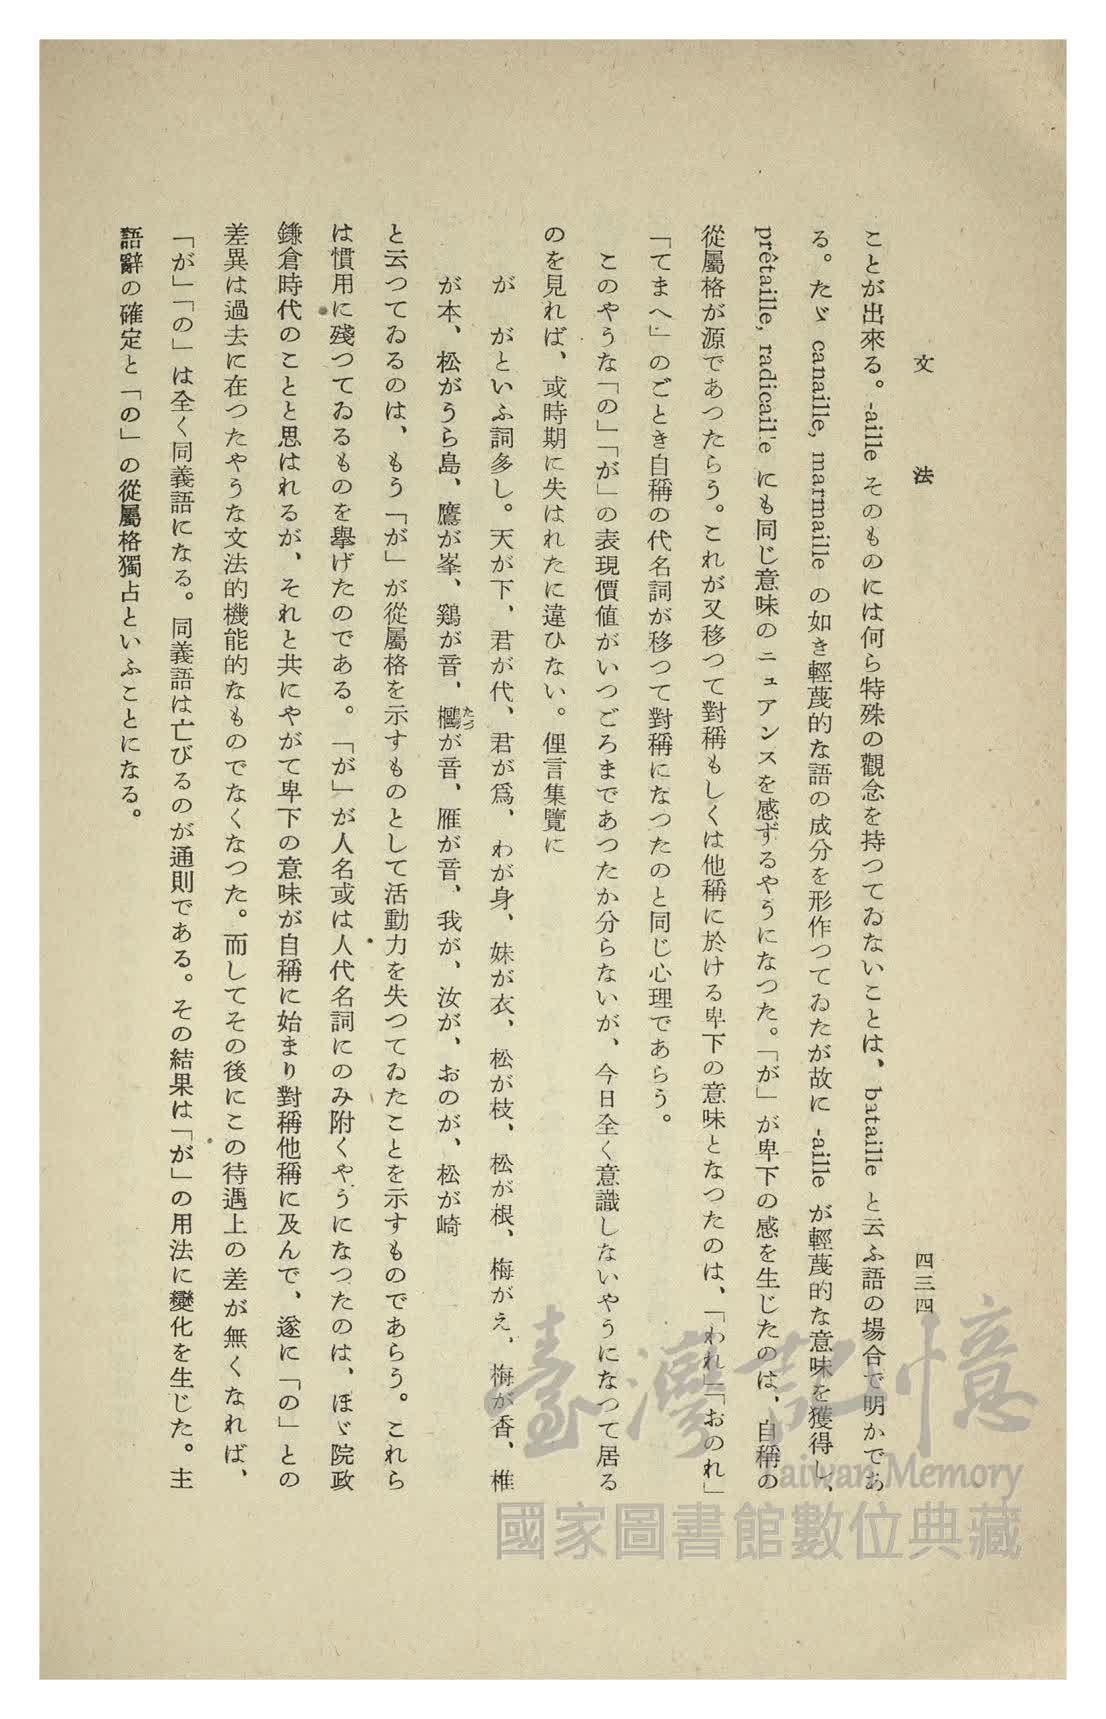 文法
四三四
ことが出來る。-aille そのものには何ら特殊の觀念を持つてゐないことは、bataille と云ふ語の場合で明かであ
る。たゞ canaille, marmaille の如き輕蔑的な語の成分を形作つてゐたが故に -aille が輕蔑的な意味を獲得し、
prêtaille, radicaille にも同じ意味のニュアンスを感ずるやうになつた。「が」が卑下の感を生じたのは、自稱の
從屬格が源であつたらう。これが又移つて對稱もしくは他稱に於ける卑下の意味となつたのは、「われ」「おのれ」
「てまへ」のごとき自稱の代名詞が移つて對稱になつたのと同じ心理であらう。
このやうな「の」「が」の表現價値がいつごろまであつたか分らないが、今日全く意識しないやうになつて居る
のを見れば、或時期に失はれたに違ひない。俚言集覽に
が　がといふ詞多し。天が下、君が代、君が爲、わが身、妹が衣、松が枝、松が根、梅がえ、梅が香、椎
が本、松がうら島、鷹が峯、鷄が音、がが音、雁が音、我が、汝が、おのが、松が崎
と云つてゐるのは、もう「が」が從屬格を示すものとして活動力を失つてゐたことを示すものであらう。これら
は慣用に殘つてゐるものを擧げたのである。「が」が人名或は人代名詞にのみ附くやうになつたのは、ほゞ院政
鎌倉時代のことと思はれるが、それと共にやがて卑下の意味が自稱に始まり對稱他稱に及んで、遂に「の」との
差異は過去に在つたやうな文法的機能的なものでなくなつた。而してその後にこの待遇上の差が無くなれば、
「が」「の」は全く同義語になる。同義語は亡びるのが通則である。その結果は「が」の用法に變化を生じた。主
語辭の確定と「の」の從屬格獨占といふことになる。
臺灣記憶
Taiwan Memory
國家圖書館數位典藏